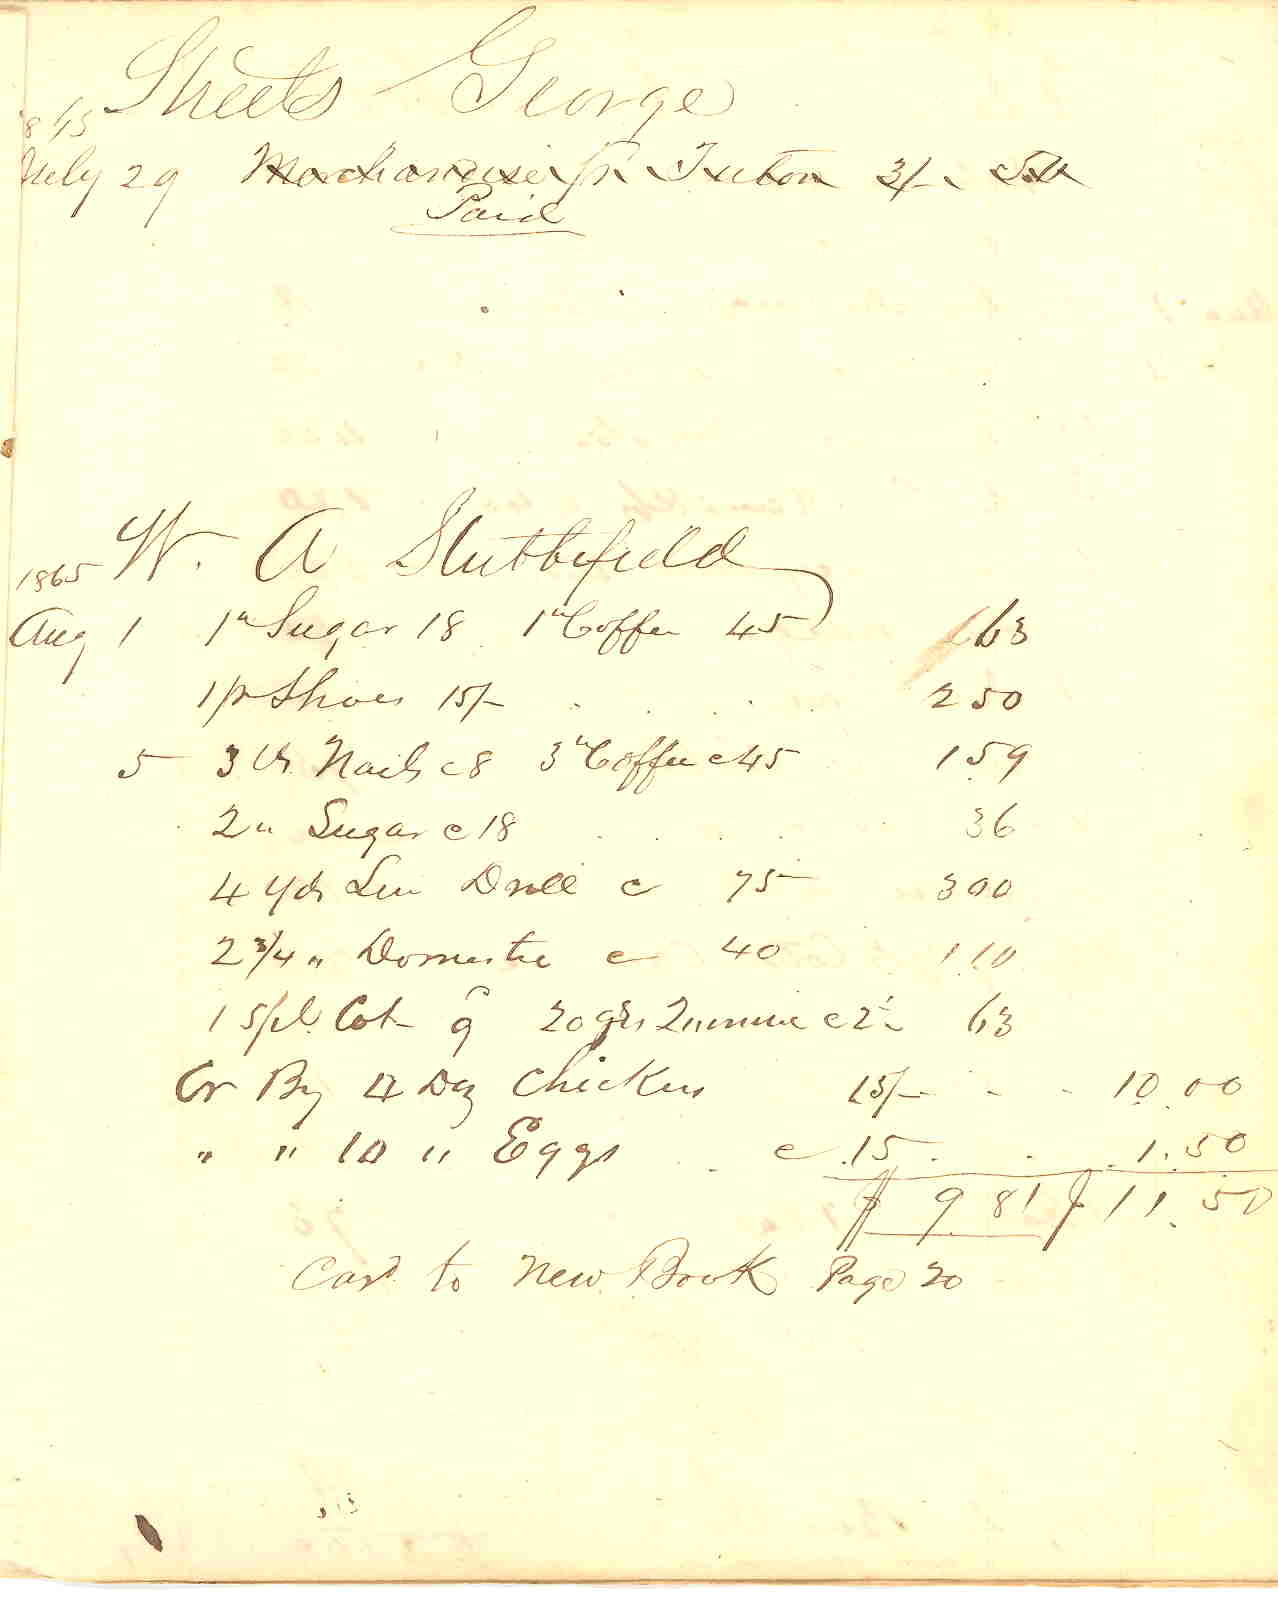 Streets George
1865
July 29 Merchandise pr Luton 3/- 50
Paid
W. A Stubblefield
1865
Aug 1 1 " Sugar 18 1 " Coffee 45 63
1 pr Shoes 15/- 2 50
5 3 lbs Nails c 8 3 " Coffee c 45 1 59
2 " Sugar c 18 36
4 yds Lin Drill c 75 3 00
2 3/4 " Domestic c 40 1 10
1 Spl. Cot 9 20 grs c 2 63
Cr By 4 Doz Chickens 15/- 10.00
" " 10 " Eggs c 15 1.50
$ 9 81 $ 11.50
Card to New Book Page 20